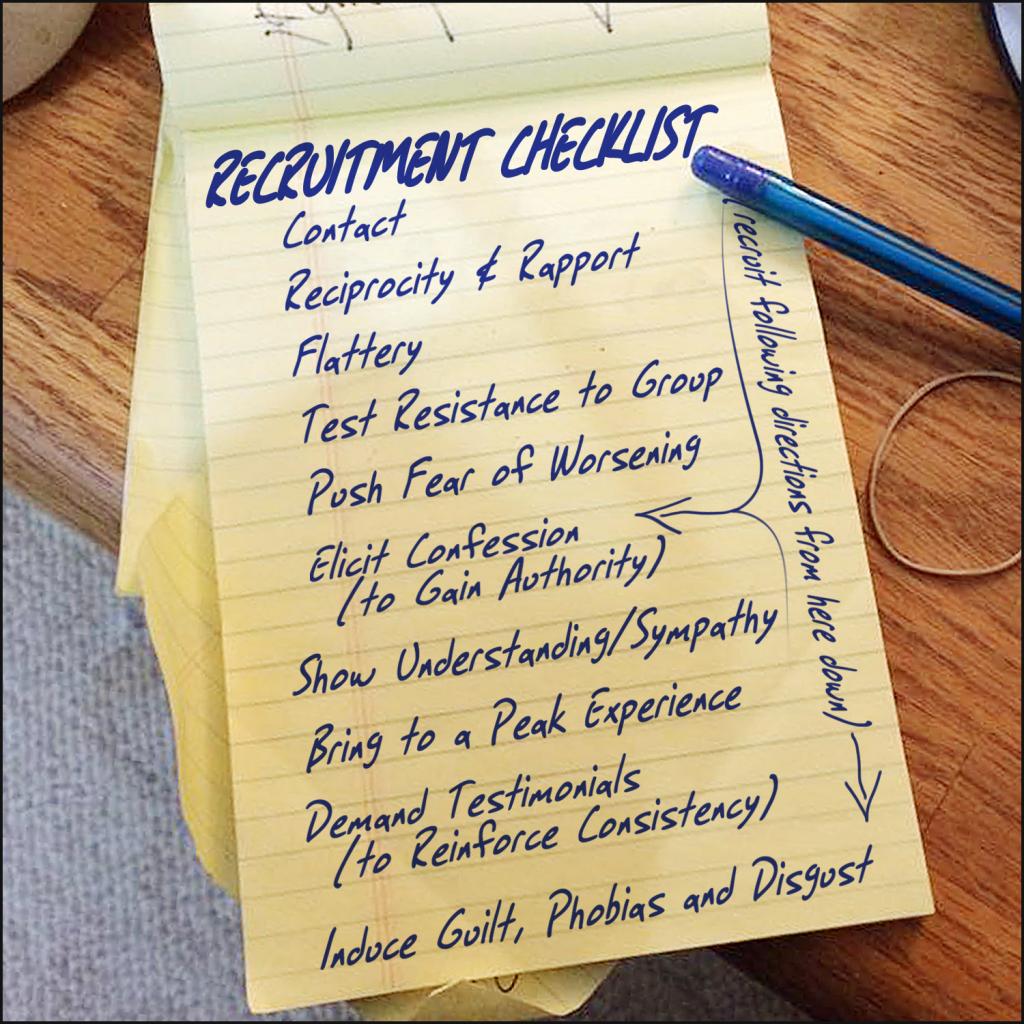 RECRUITMENT CHECKLIST
Contact
Reciprocity & Rapport
Flattery
Test Resistance to Group
Push Fear of Worsening
Elicit Confession
(to Gain Authority)
Show Understanding/Sympathy
Bring to a Peak Experience
Demand Testimonials
(to Reinforce Consistency)
Induce Guilt, Phobias and Disgust
(recruit following directions from here down)